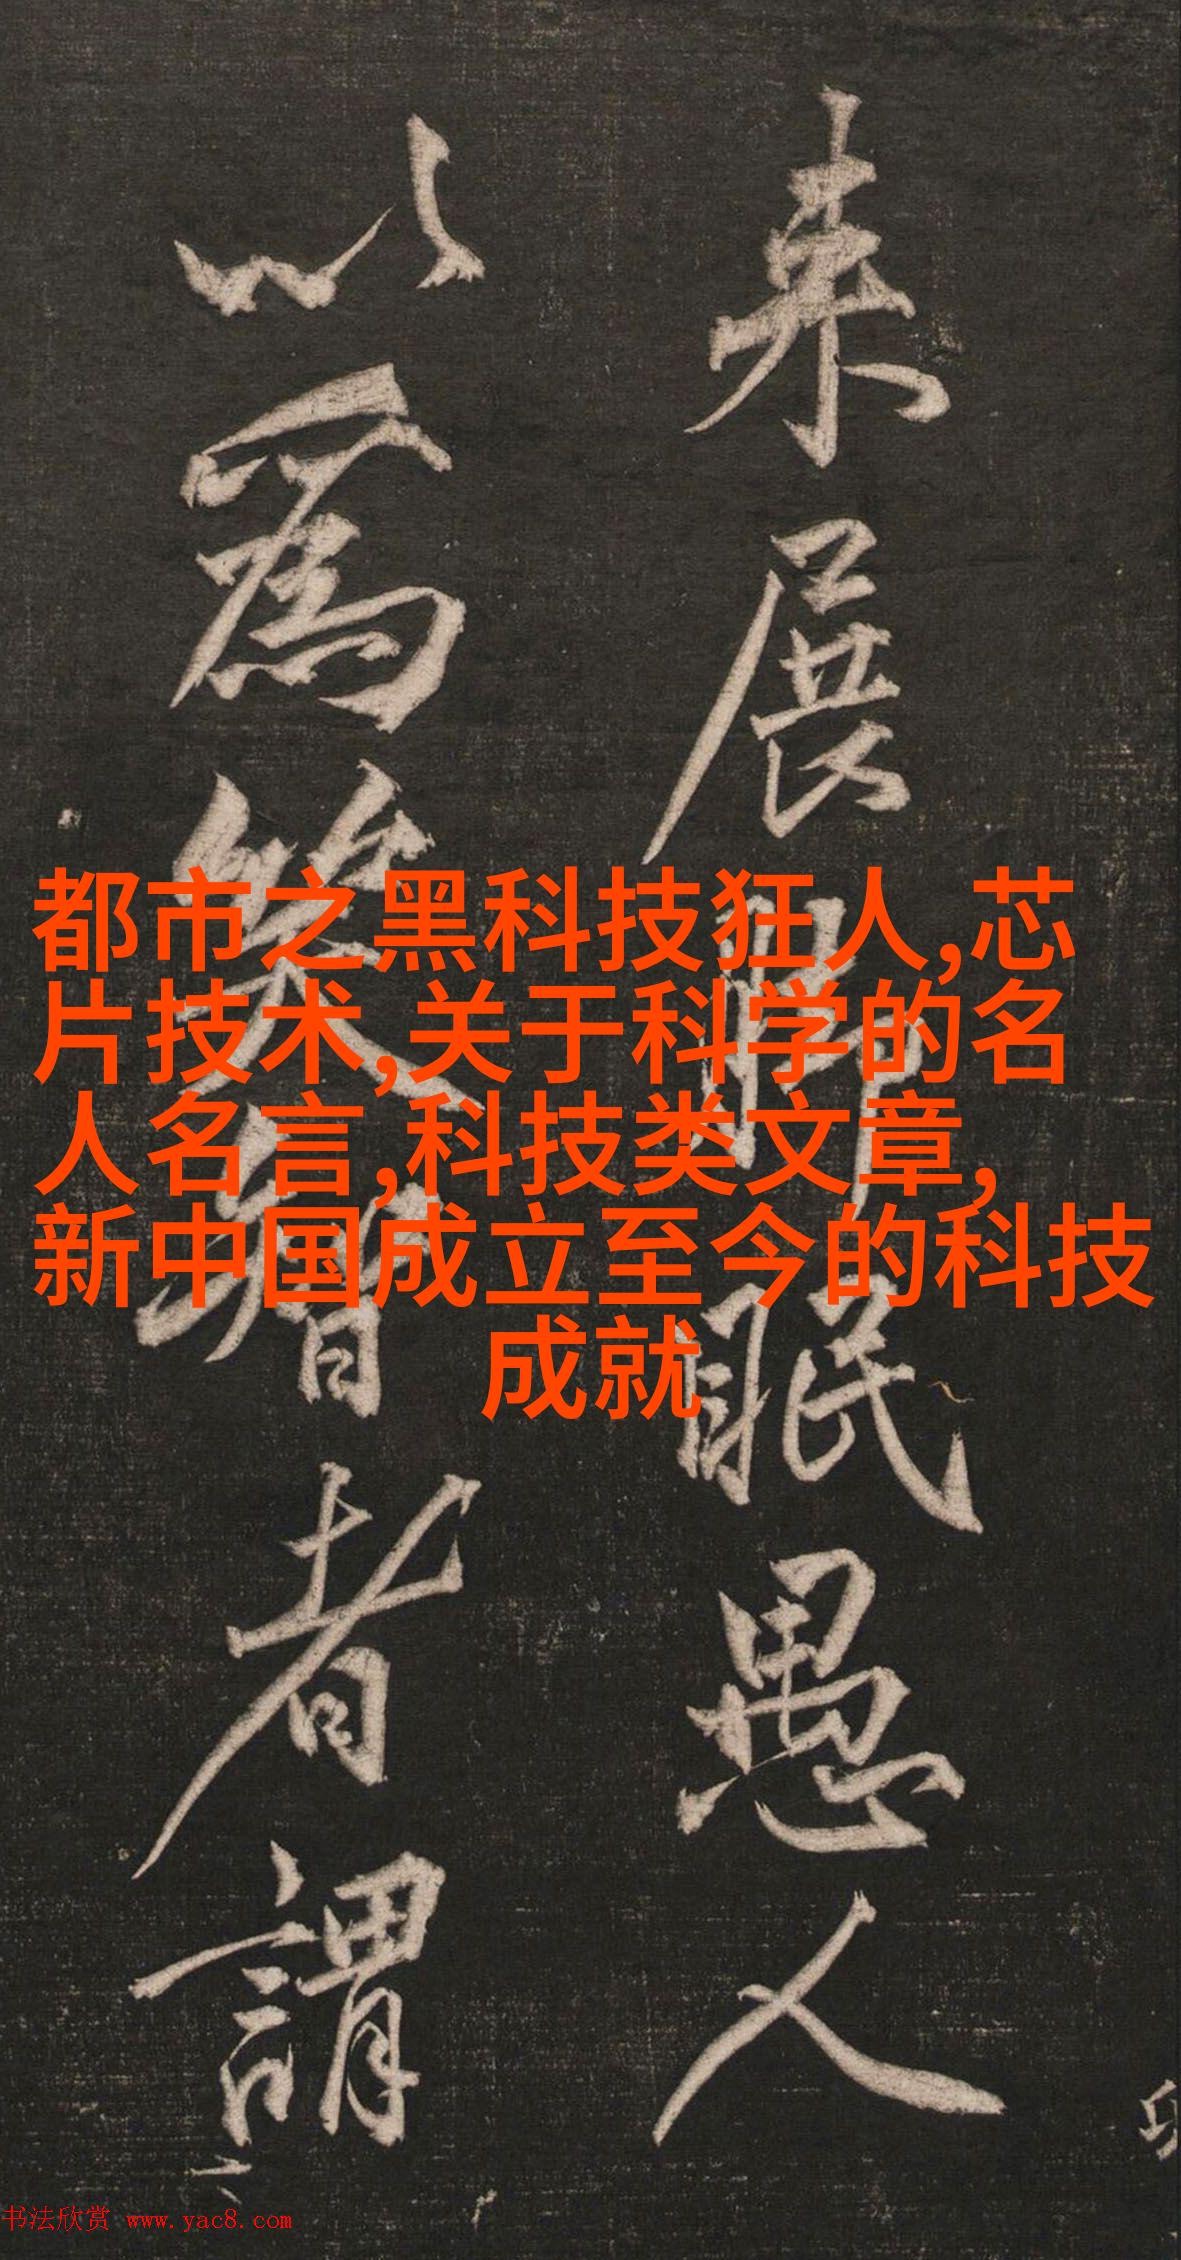 来展脚眠愚人
以為笑智者謂
都市之黑科技狂人,芯
片技术,关于科学的名
人名言,科技类文章,
新中国成立至今的科技
成就
书法欣赏 www.yac8.com